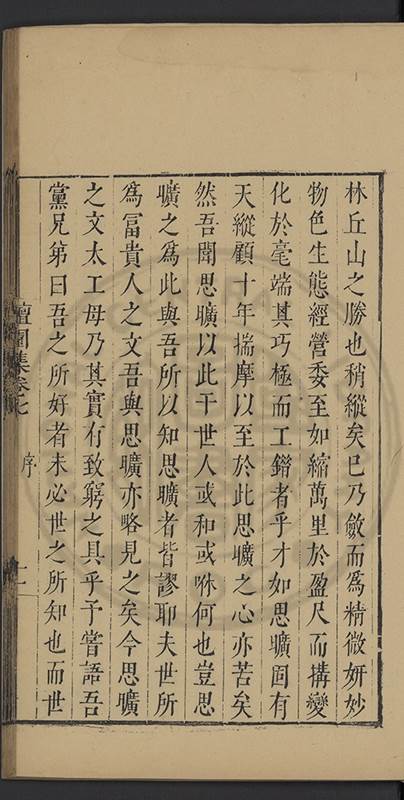 林丘山之勝也稍縱矣已乃斂而爲精微妍妙
物色生態經營委至如縮萬里於盈尺而搆變
化於毫端其巧極而工鎈者乎才如思曠固有
天縱顧十年揣摩以至於此思曠之心亦苦矣
然吾聞思曠以此干世人或和或咻何也豈思
曠之爲此與吾所以知思曠者皆謬耶夫世所
爲冨貴人之文吾與思曠亦略見之矣今思曠
之文太工毋乃其實有致窮之具乎予嘗語吾
黨兄弟曰吾之所好者未必世之所知也而世
檀園集卷七
序